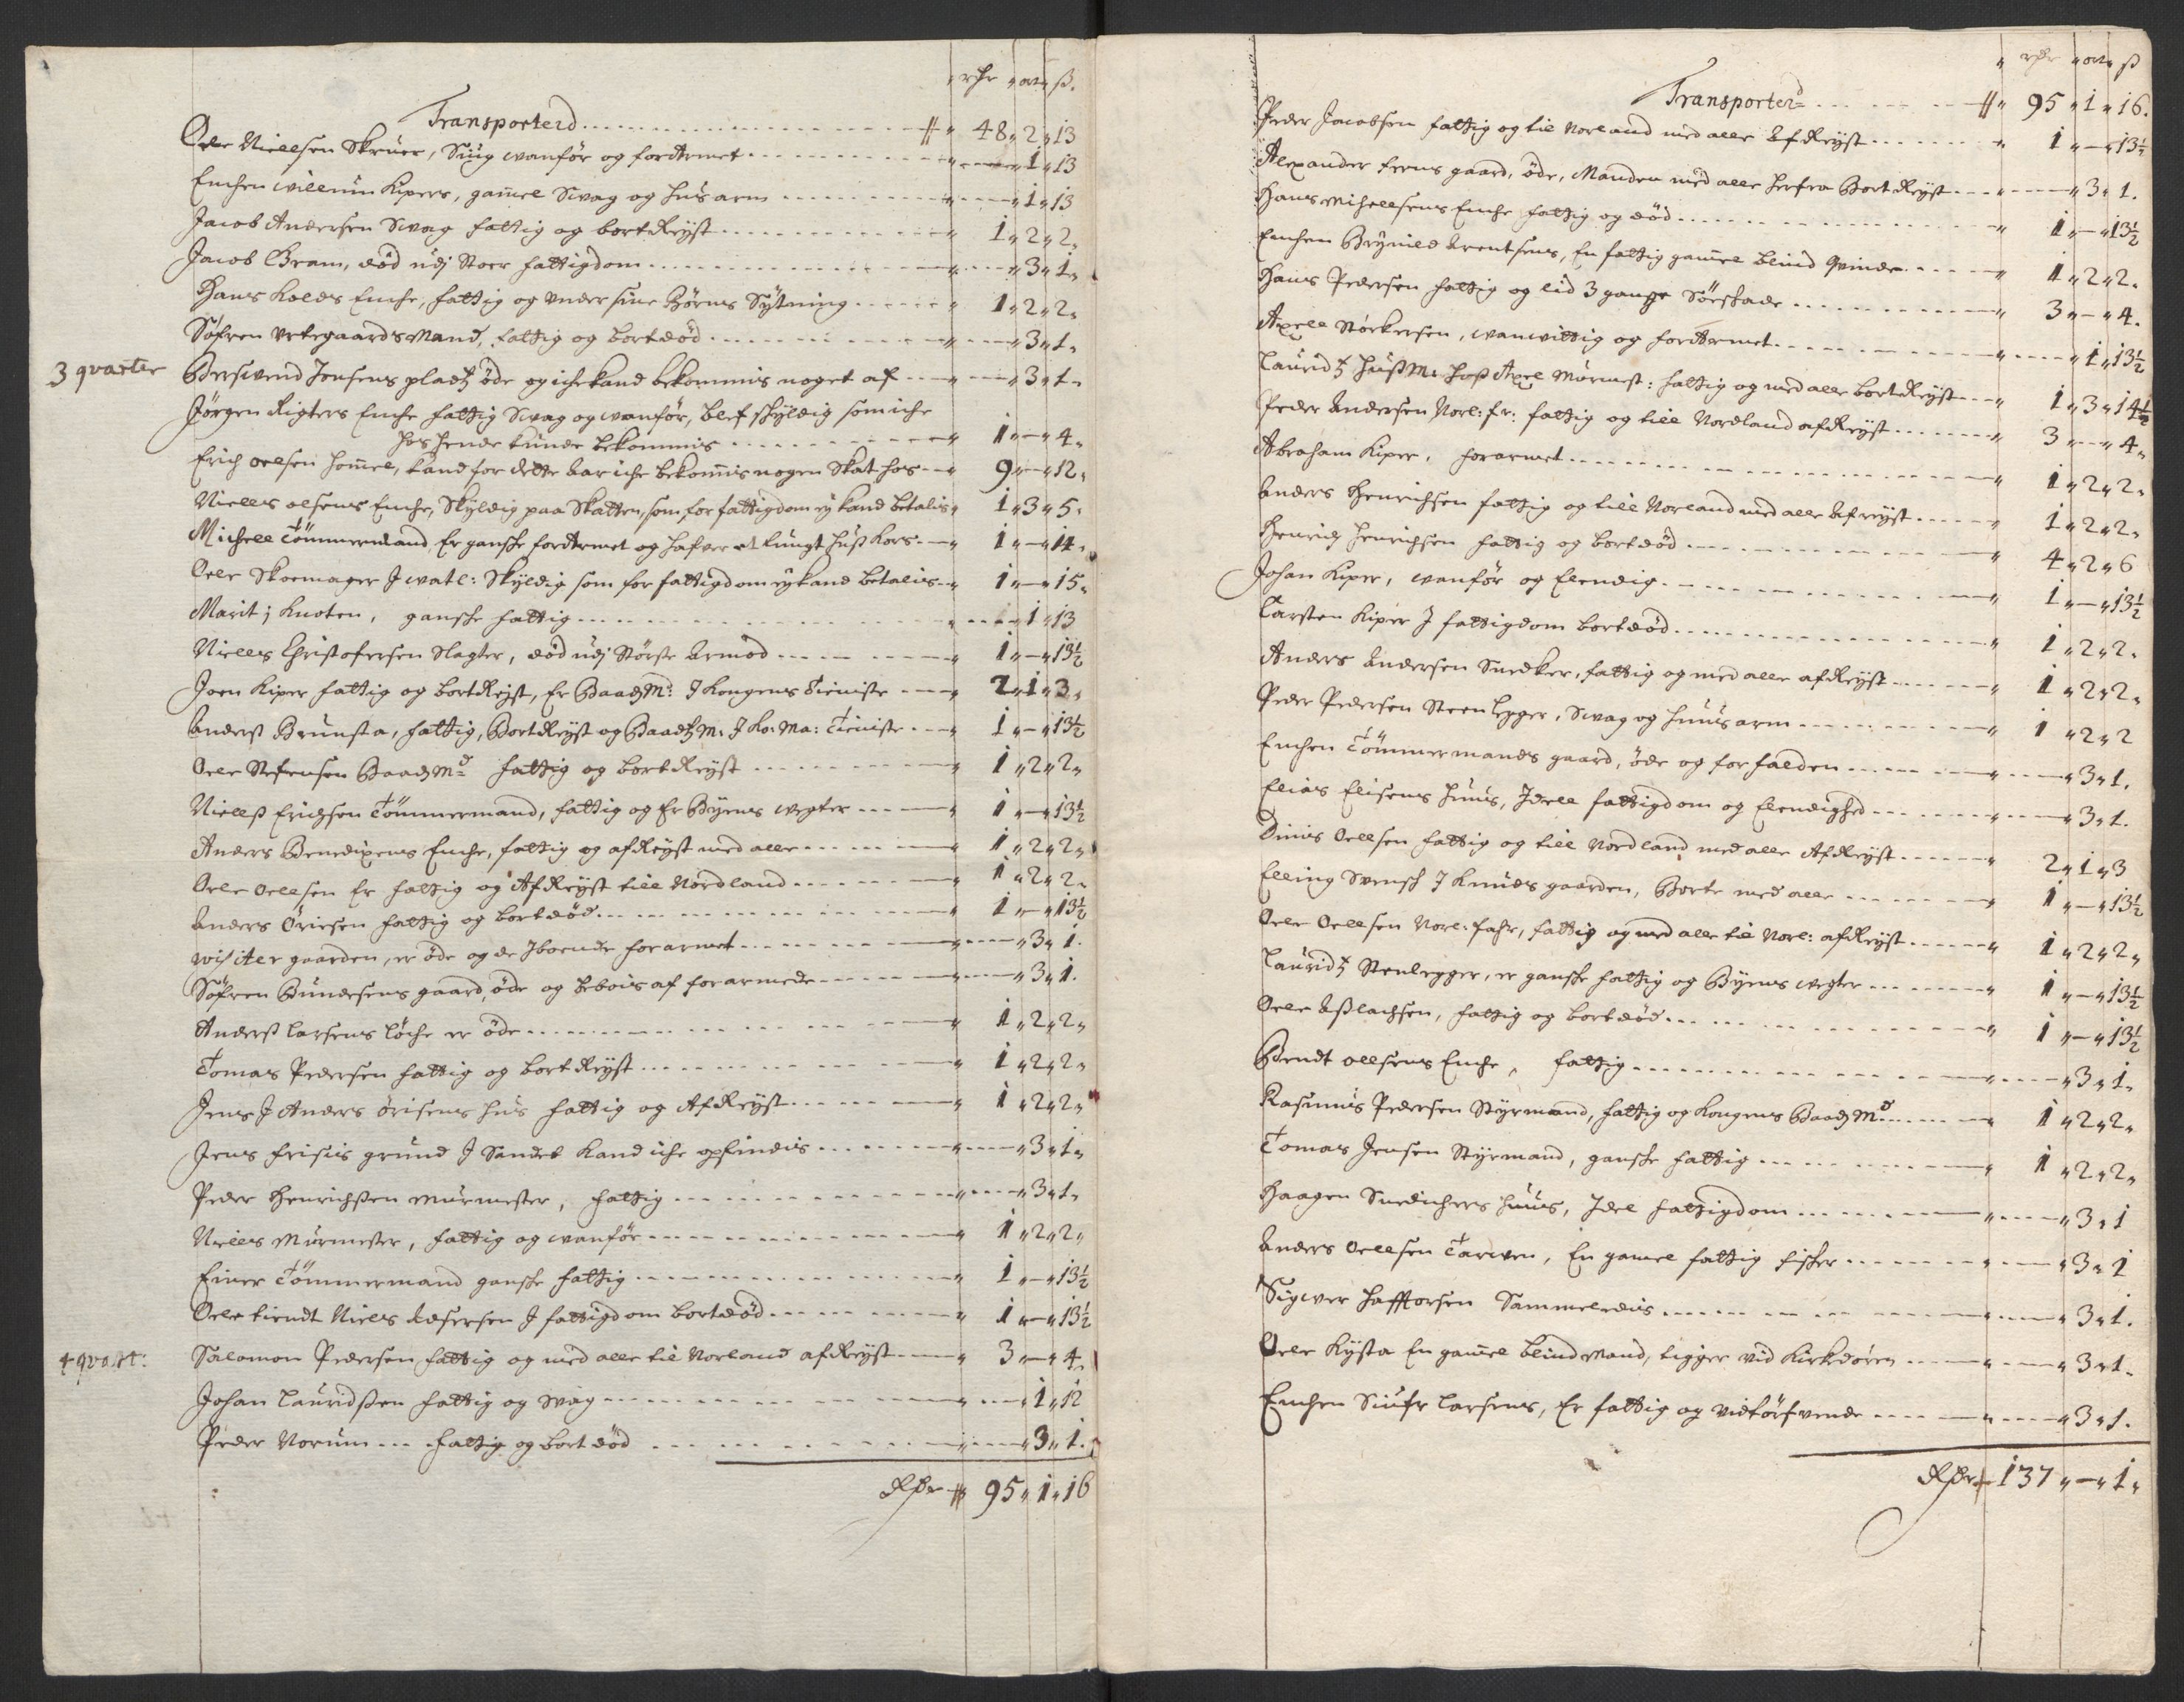 rdr ort ß.
Transporterd 48 2 13
Oele Nielsen Skruer, Siug wanför og forArmet 1 13
Enchen willum Kipers, gam̄el Swag og huus arm 1 13
Jacob Andersen Swag fattig og bortReyst 1 2 2
Jacob Bram, död udj Stoer fattigdom 3 1
Hans Kolds Enche, fattig og under sine Börns Sÿtning 1 2 2
Söfren Urtegaards Mand, fattig og bortdöd 3 1
3 quarter
Berswend Jonsens pladtz öde og iche kand bekommis noget af 3 1
Jörgen Rigters Enche fattig Swag og wanför, blef skÿldig som iche
hos hende kunde bekommis 1 — 4
Erich Oelsen Hom̄el, kand for dette Aar iche bekom̄is nogen Skat hos 9 — 12
Niells olsens Enche, Skÿldig paa Skatten, som for fattigdom ej kand betalis 1 3 5
Michell Tömmermand, Er ganske forArmet og hafver et tungt huß Kors 1 — 14
Oele Skoemager J watl: Skÿldig som for fattigdom eÿ kand betalis 1 — 15
Marit j Knoten, ganske fattig 1 13
Niells Christofersen Slagter, död udj Störste Armod 1 — 13½
Joen Kiper fattig og bortRejst, Er Baadtzmd: J Kongens Tieniste 2 1 3
Anderß Brunsta, fattig, BortReÿst og Baadtzm: J Ko: Ma: Tieniste 1 — 13½
Oele Stefensen Baadtzmd fattig og bortReÿst 1 2 2
Nielß Erichsen Tömmermand, fattig og Er Bÿens wegter 1 — 13½
Anders Benedixens Enche, fattig og afReÿst med alle 1 2 2
Oele Oellsen Er fattig og AfReÿst till Nordland 1 2 2
Anders Örisen fattig og bortdöd 1 — 13½
wisiter gaarden, er öde og de Jboende forarmet 3 1
Söfren Bundesens gaard, öde og beboes af forarmede 3 1
Anderß Larsens Löche er öde 1 2 2
Tomas Pedersen fattig og bortReÿst 1 2 2
Jens J Anders örisens hus fattig og AfReÿst 1 2 2
Jens frisiis grund J Sandet kand iche opfindis 3 1
Peder Henrichßen Murmester, fattig 3 1
Niells Murmester, fattig og wanför 1 2 2
Einer Tömmermand ganske fattig 1 — 13½
Oele tiendt Niels Assersen J fattigdom bortdöd 1 — 13½
4 quart:
Salomon Pedersen, fattig og med alle til Norland afReÿst 3 — 4
Johan Lauridßen fattig og Swag 1 12
Peder Norum fattig og bort död 3 1
Rdr 95 1 16
rdr ort ß
Transporterd 95 1 16
Peder Jacobsen fattig og til Norland med alle AfReÿst 1 — 13½
Alexander Ferns gaard, öde, Manden med alle herfra BortReÿst 3 1
Hans Michellsens Enche fattig og död 1 — 13½
Enchen Brÿnild Arentsens, En fattig gam̄el blind Qvinde 1 2 2
Hans Pedersen fattig og lid 3 gange Söeskade 3 — 4
Axell Störkersen, wanwittig og forArmet 1 13½
Lauridtz Hußm: hoß Axel Murmest: fattig og med alle bortReÿst 1 3 14½
Peder Andersen Norl: fr: fattig og till Nordland afReÿst 3 — 4
Abraham Kiper, forarmet 1 2 2
Anders Henrichsen fattig og till Norland med alle Afreÿst 1 2 2
Henrich Henrichsen fattig og bortdöd 4 2 6
Johan Kiper, wanför og Elendig 1 — 13½
Carsten Kiper J fattigdom bortdöd 1 2 2
Anders Andersen Snedker, fattig og med alle afReÿst 1 2 2
Peder Pedersen Steenlegger, Swag og huus arm 1 2 2
Enchen Tömmermands gaard, öde og forfalden 3 1
Elias Elisens huus, Jdell fattigdom og Elendighed 3 1
Dinis Oellsen fattig og till Nordland med alle AfReÿst 2 1 3
Elling Svensk J Knuds gaarden, Borte med alle 1 — 13½
Oele Oellsen Norl: fahr, fattig og med alle til Norl: afReÿst 1 2 2
Lauridtz Stenlegger, er ganske fattig og Bÿens wegter 1 — 13½
Oele Aßlachsen, fattig og bortdöd 1 — 13½
Bendt ollsens Enche, fattig 3 1
Rasmus Pedersen Stÿrmand, fattig og Kongens Baadtzmd 1 2 2
Tomas Jensen Stÿrmand, ganske fattig 1 2 2
Haagen Snedichers huus, Jdel fattigdom 3 1
Anders Oellsen Tarwen, En gamel fattig fisker 3 1
Sigwer Hafftorsen Sammeledis 3 1
Oele Kÿsta En gam̄el blind Mand, ligger vid Kirkedören 3 1
Enchen Siufr Larsens, Er fattig og nödtörfvende 3 1
Rdr 137 — 1